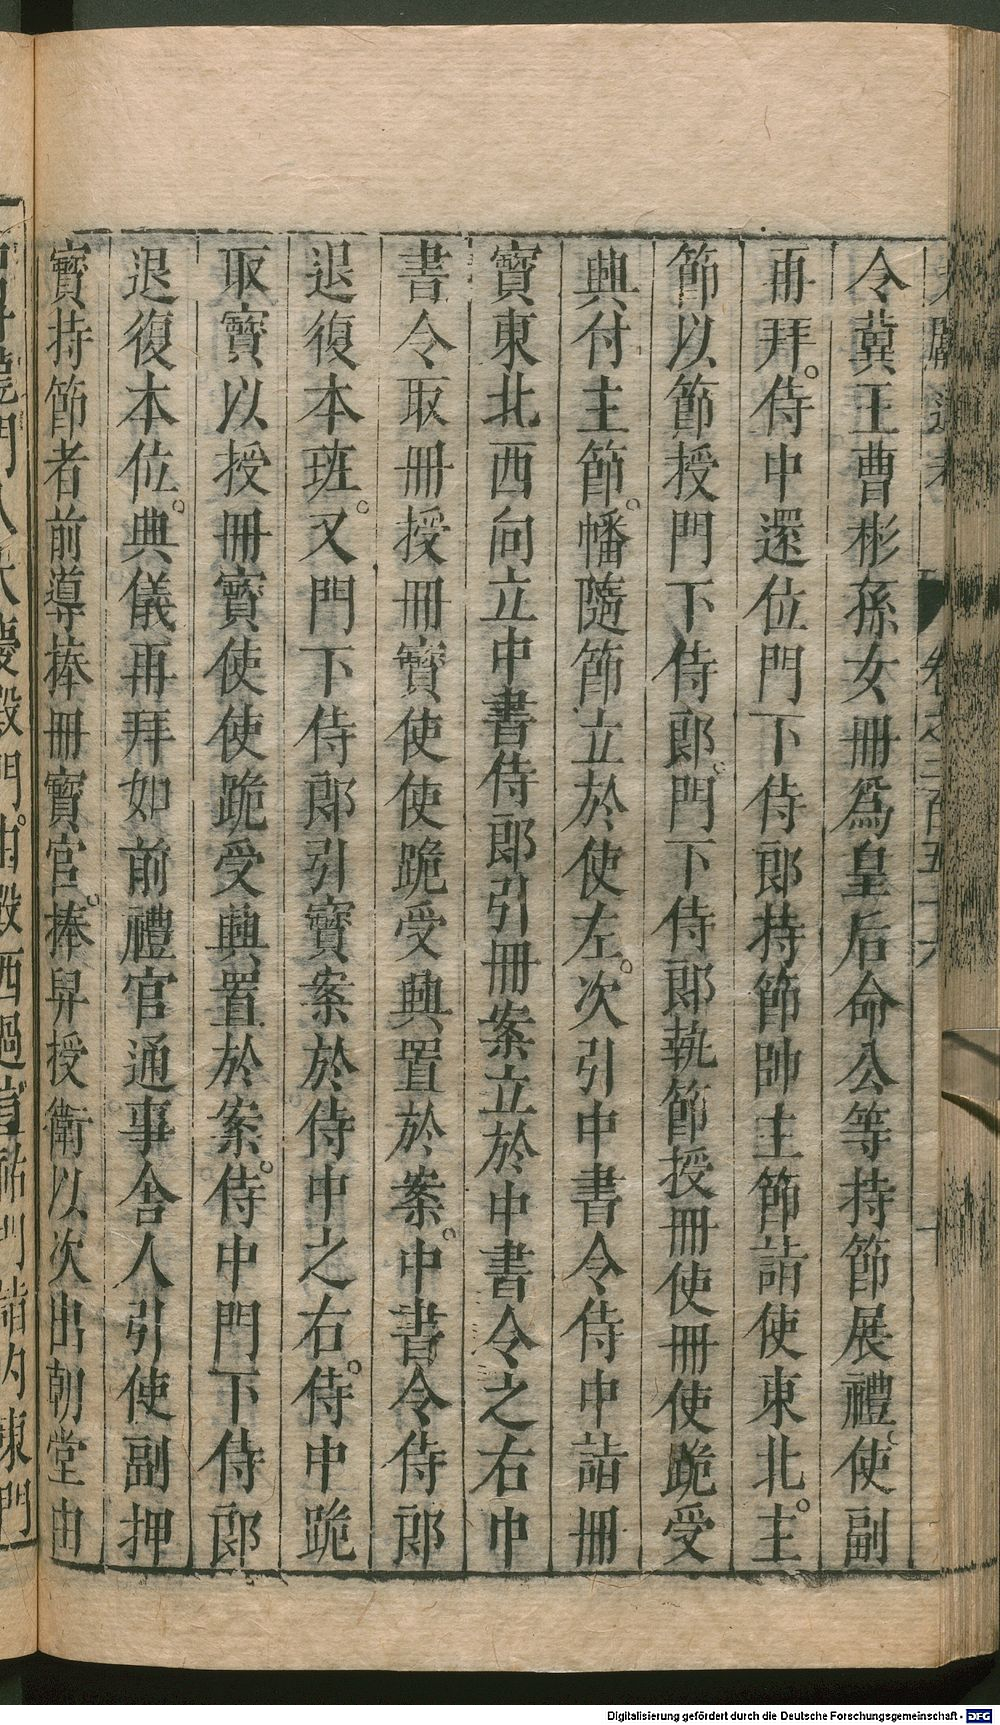 令冀王曹彬孫女冊爲皇后命公等持節展禮。使副
再拜。侍中還位門下侍郎持節帥主節詣使東北。主
節以節授門下侍郎。門下侍郎執節授冊使冊使跪受
興付主節。幡隨節立於使左。次引中書令侍中詣冊
寳東北西向立中書侍郎引冊案立於中書令之右中
書令取冊授冊寳使使跪受興置於案。中書令侍郎
退復本班。又門下侍郎引寳案於侍中之右。侍中跪
取寳以授冊寳使使跪受興置於案。侍中門下侍郎
退復本位。典儀再拜如前禮官通事舍人引使副押
寳持節者前導捧冊寳官。捧舁授衛以次出朝堂由
Digitalisierung gefördert durch die Deutsche Forschungsgemeinschaft - DFG